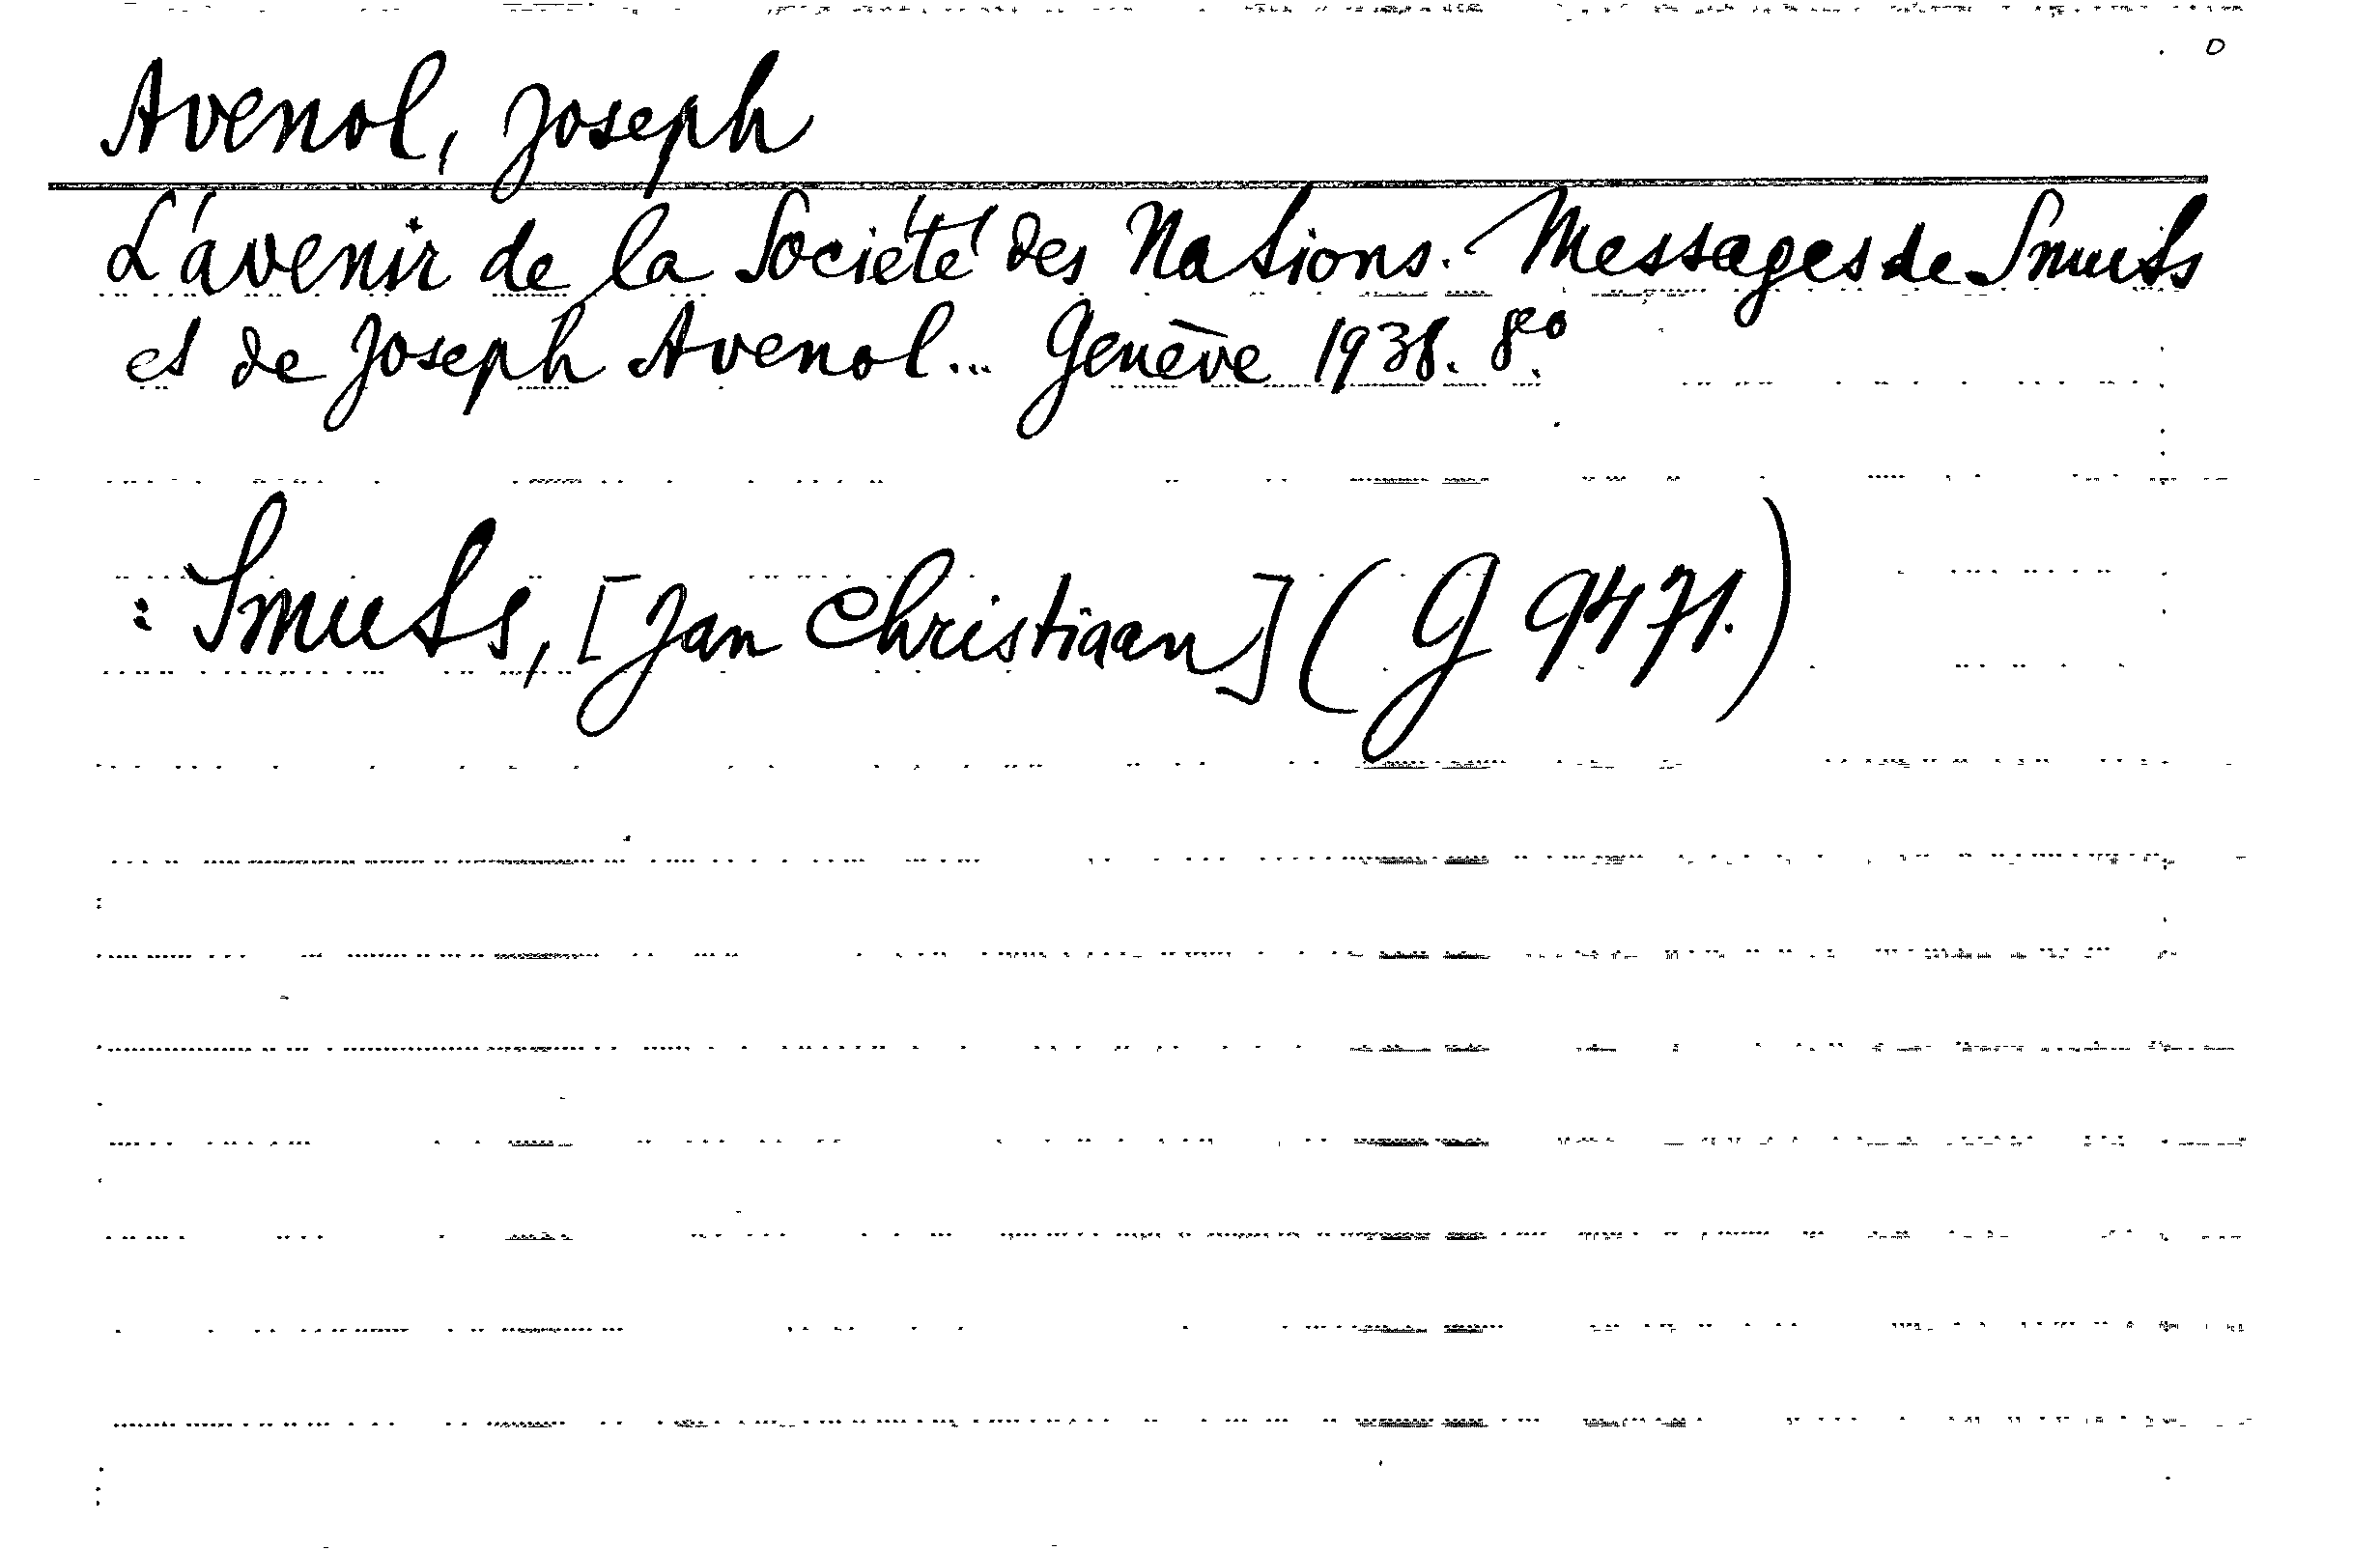 Avenol, Joseph
L'avenir de la Société des Nations. Messages de Smuts
et de Joseph Avenol... Genève 1938. 8:o
: Smuts, [Jan Christiaan] (G 9471.)